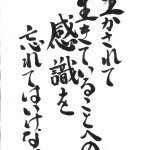 生かされて
生きていることへの
感識を
忘れてはいけな